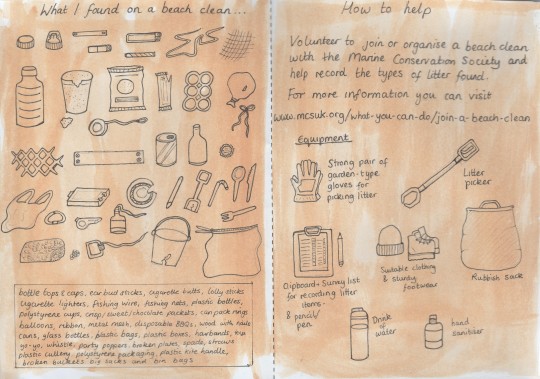 What I found on a beach clean...
bottle tops & caps, ear bud sticks, cigarette butts, lolly sticks
cigarette lighters, fishing wire, fishing nets, plastic bottles,
polystyrene cups, crisp/sweet/chocolate packets, can pack rings
balloons, ribbon, metal mesh, disposable BBQs, wood with nails
cans, glass bottles, plastic bags, plastic boxes, hairbands,
yo-yo, whistle, party poppers, broken plates, spade, straws
plastic cutlery, polystyrene packaging, plastic kite handle,
broken buckets big sacks and bin bags
How to help
Volunteer to join or organise a beach clean
with the Marine Conservation Society and
help record the types of litter found.
For more information you can visit
www.mcsuk.org/what-you-can-do/join-a-beach-clean
Equipment
Strong pair of
garden-type
gloves for
picking litter
Litter
picker
Clipboard + Survey list
for recording litter
items.
& pencil/
pen
Suitable clothing
& sturdy
footwear
Rubbish sack
Drink
of
water
hand
sanitiser